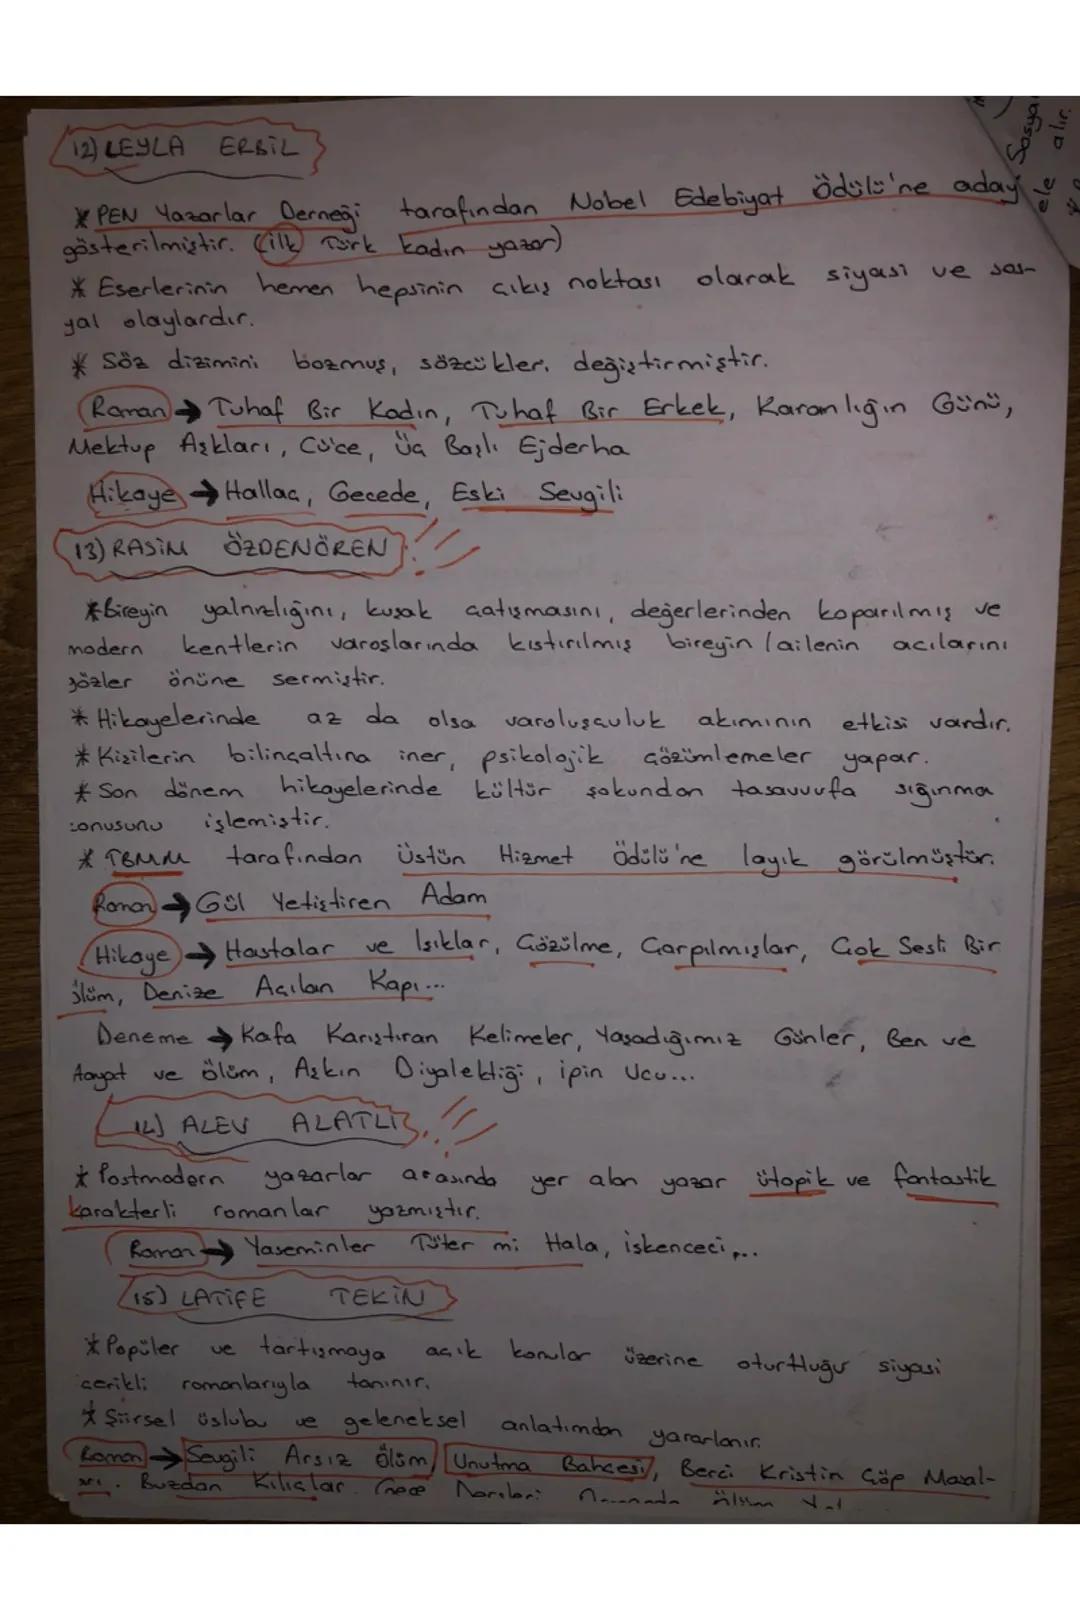 12) LEYLA ERBİL
* PEN Yazarlar Derneği tarafından Nobel Edebiyat Ödülü'ne aday
gösterilmiştir. (ilk Türk kadın yazar)
* Eserlerinin hemen hepsinin çıkış noktası olarak siyasi ve sos-
yal olaylardır.
* Söz dizimini bozmuş, sözcükleri değiştirmiştir.
Roman → Tuhaf Bir Kadın, Tuhaf Bir Erkek, Karanlığın Günü,
Mektup Aşkları, Cüce, Üç Başlı Ejderha
Hikaye → Hallaç, Gecede, Eski Sevgili
13) RASİM ÖZDENÖREN !!!
* Bireyin yalnızlığını, kuşak çatışmasını, değerlerinden koparılmış ve
modern kentlerin varoşlarında kıstırılmış bireyin / ailenin acılarını
gözler önüne sermiştir.
* Hikayelerinde az da olsa varoluşçuluk akımının etkisi vardır.
* Kişilerin bilinçaltına iner, psikolojik çözümlemeler yapar.
* Son dönem hikayelerinde kültür şokundan tasavvufa sığınma
konusunu işlemiştir.
* TBMM tarafından Üstün Hizmet Ödülü'ne layık görülmüştür.
Roman → Gül Yetiştiren Adam
Hikaye → Hastalar ve Işıklar, Çözülme, Çarpılmışlar, Çok Sesli Bir
Ölüm, Denize Açılan Kapı...
Deneme → Kafa Karıştıran Kelimeler, Yaşadığımız Günler, Ben ve
Hayat ve Ölüm, Aşkın Diyalektiği, İpin Ucu...
14) ALEV ALATLI !!!
* Postmodern yazarlar arasında yer alan yazar ütopik ve fantastik
karakterli romanlar yazmıştır.
Roman → Yaseminler Tüter mi Hala, İşkenceci,...
15) LATİFE TEKİN
* Popüler ve tartışmaya açık konular üzerine oturttuğu siyasi
içerikli romanlarıyla tanınır.
* Şiirsel üslubu ve geleneksel anlatımdan yararlanır.
Roman → Sevgili Arsız Ölüm, Unutma Bahçesi, Berci Kristin Çöp Masal-
ları, Buzdan Kılıçlar, Gece Dersleri
Sosya
ele alır.